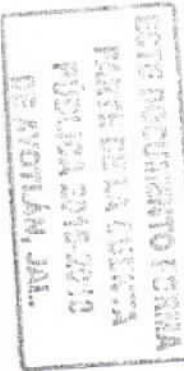 ESTE DOCUMENTO FORMA
PARTE DE LA CUENTA
PÚBLICA
DE AYOTLÁN, JAL.